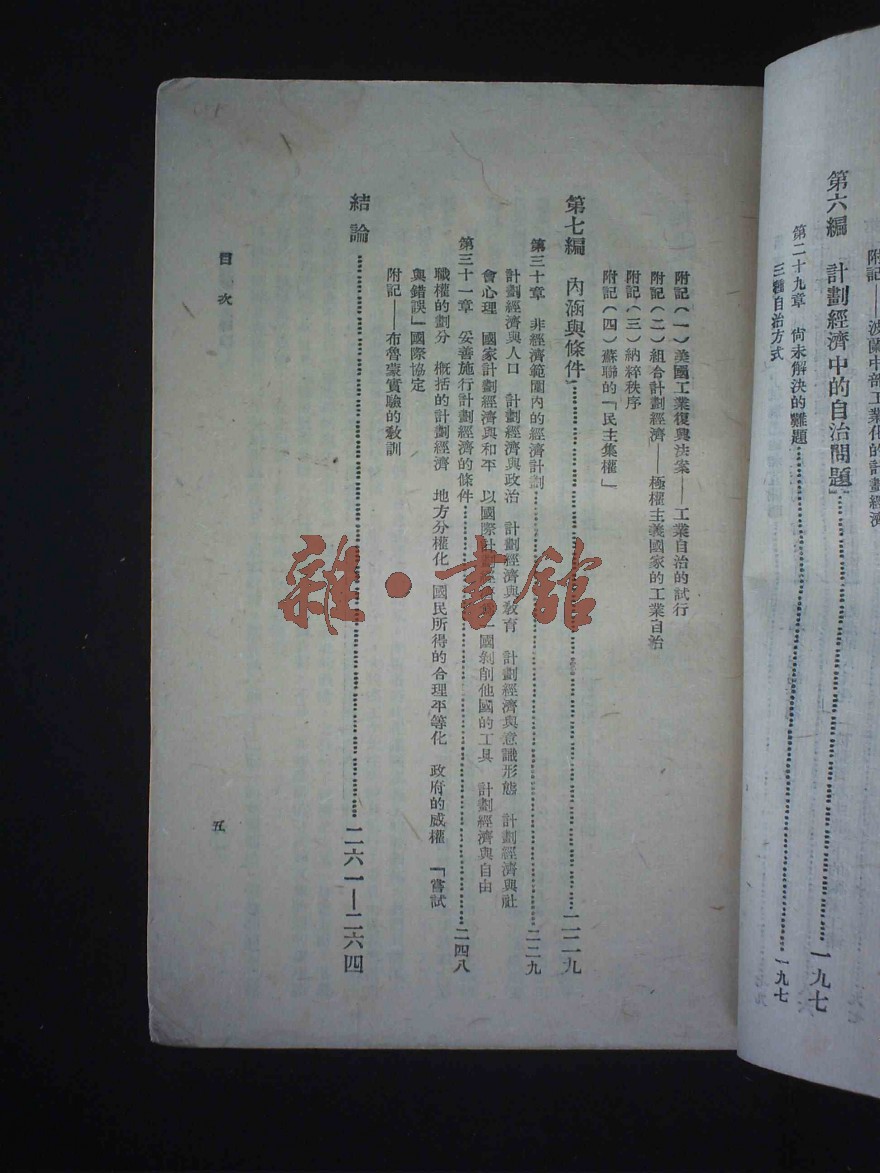 附記——波蘭中部工業化的計劃經濟
第六編　計劃經濟中的自治問題……一九七
第二十九章　尙未解決的難題……一九七
三種自治方式
附記（一）美國工業復興法案——工業自治的試行
附記（二）組合計劃經濟——極權主義國家的工業自治
附記（三）納粹秩序
附記（四）蘇聯的「民主集權」
第七編　內涵與條件……二二九
第三十章　非經濟範圍內的經濟計劃……二二九
計劃經濟與人口　計劃經濟與政治　計劃經濟與敎育　計劃經濟與意識形態　計劃經濟與社
會心理　國家計劃經濟與和平　以國際計劃經濟　一國剝削他國的工具　計劃經濟與自由
第三十一章　妥善施行計劃經濟的條件……二四八
職權的劃分　槪括的計劃經濟　地方分權化　國民所得的合理平等化　政府的威權　「嘗試
與錯誤」國際協定
附記——布魯蒙實驗的敎訓
結論……二六一—二六四
目次
五
雜·書館